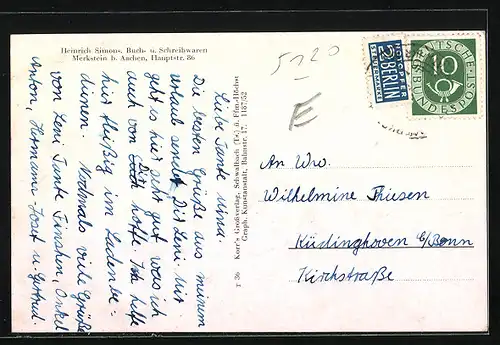 Heinrich Simons, Buch- u. Schreibwaren
Merkstein b. Aachen, Hauptstr. 86
Liebe Tante Mina.
Die besten Grüße aus meinem
Urlaub sendet Dir Leni. Mir
geht es hier sehr gut was ich
auch von Euch Dir hoffe. Ich helfe
hier fleißig im Laden be-
dienen. Nochmals viele Grüße
von Leni Tante Finchen, Onkel
Anton, Hermann-Josef u Gertrud.
T 36 Korr's Großverlag, Schwalbach (Ts) ü. Ffm.-Höchst
Graph. Kunstanstalt, Bahnstr. 17. 1187/52
5120
E
NOTOPFER
2 BERLIN
STEUERMARKE
DEUTSCHE
BUNDESPOST
10
An Ww.
Wilhelmine Thiesen
Küdinghoven b/Bonn
Kirchstraße